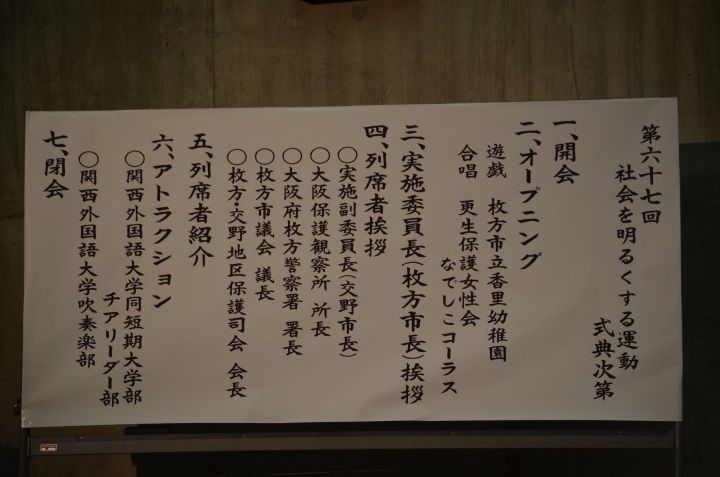 第六十七回
社会を明るくする運動
式典次第
一、開会
二、オープニング
遊戯 枚方市立香里幼稚園
合唱 更生保護女性会
なでしこコーラス
三、実施委員長(枚方市長)挨拶
四、列席者挨拶
〇実施副委員長(交野市長)
〇大阪保護観察所 所長
〇大阪府枚方警察署 署長
〇枚方市議会 議長
〇枚方・交野地区保護司会 会長
五、列席者紹介
六、アトラクション
〇関西外国語大学同短期大学部
チアリーダー部
〇関西外国語大学吹奏楽部
七、閉会